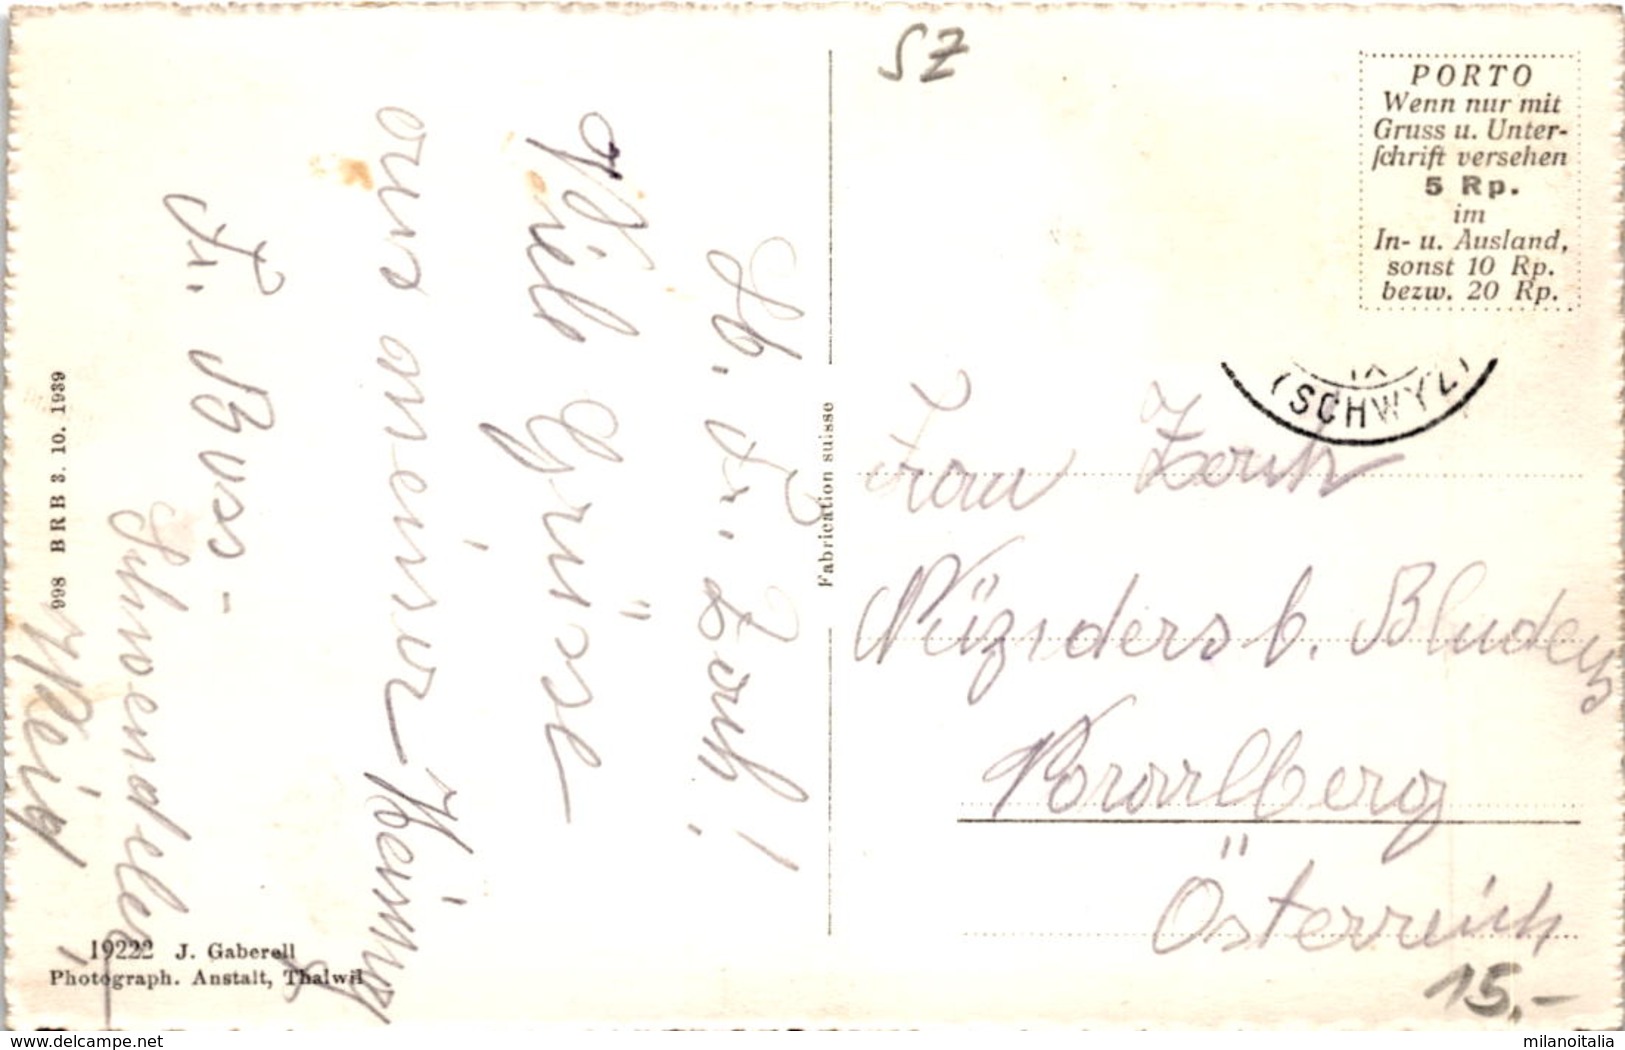 Lb. Fr. Zerth!
Viele Grüsse
aus meiner Heimat
Fr. Buss-
Schwendeler
Weid
998 BRB 3. 10. 1939
19222 J. Gaberell
Photograph. Anstalt, Thalwil
Fabrication suisse
SZ
PORTO
Wenn nur mit
Gruss u. Unter-
schrift versehen
5 Rp.
im
In- u. Ausland,
sonst 10 Rp.
bezw. 20 Rp.
(SCHWYZ)
Frau
Nüziders b. Bludenz
Vorarlberg
Österreich
15.-
delcampe.net
milanoitalia